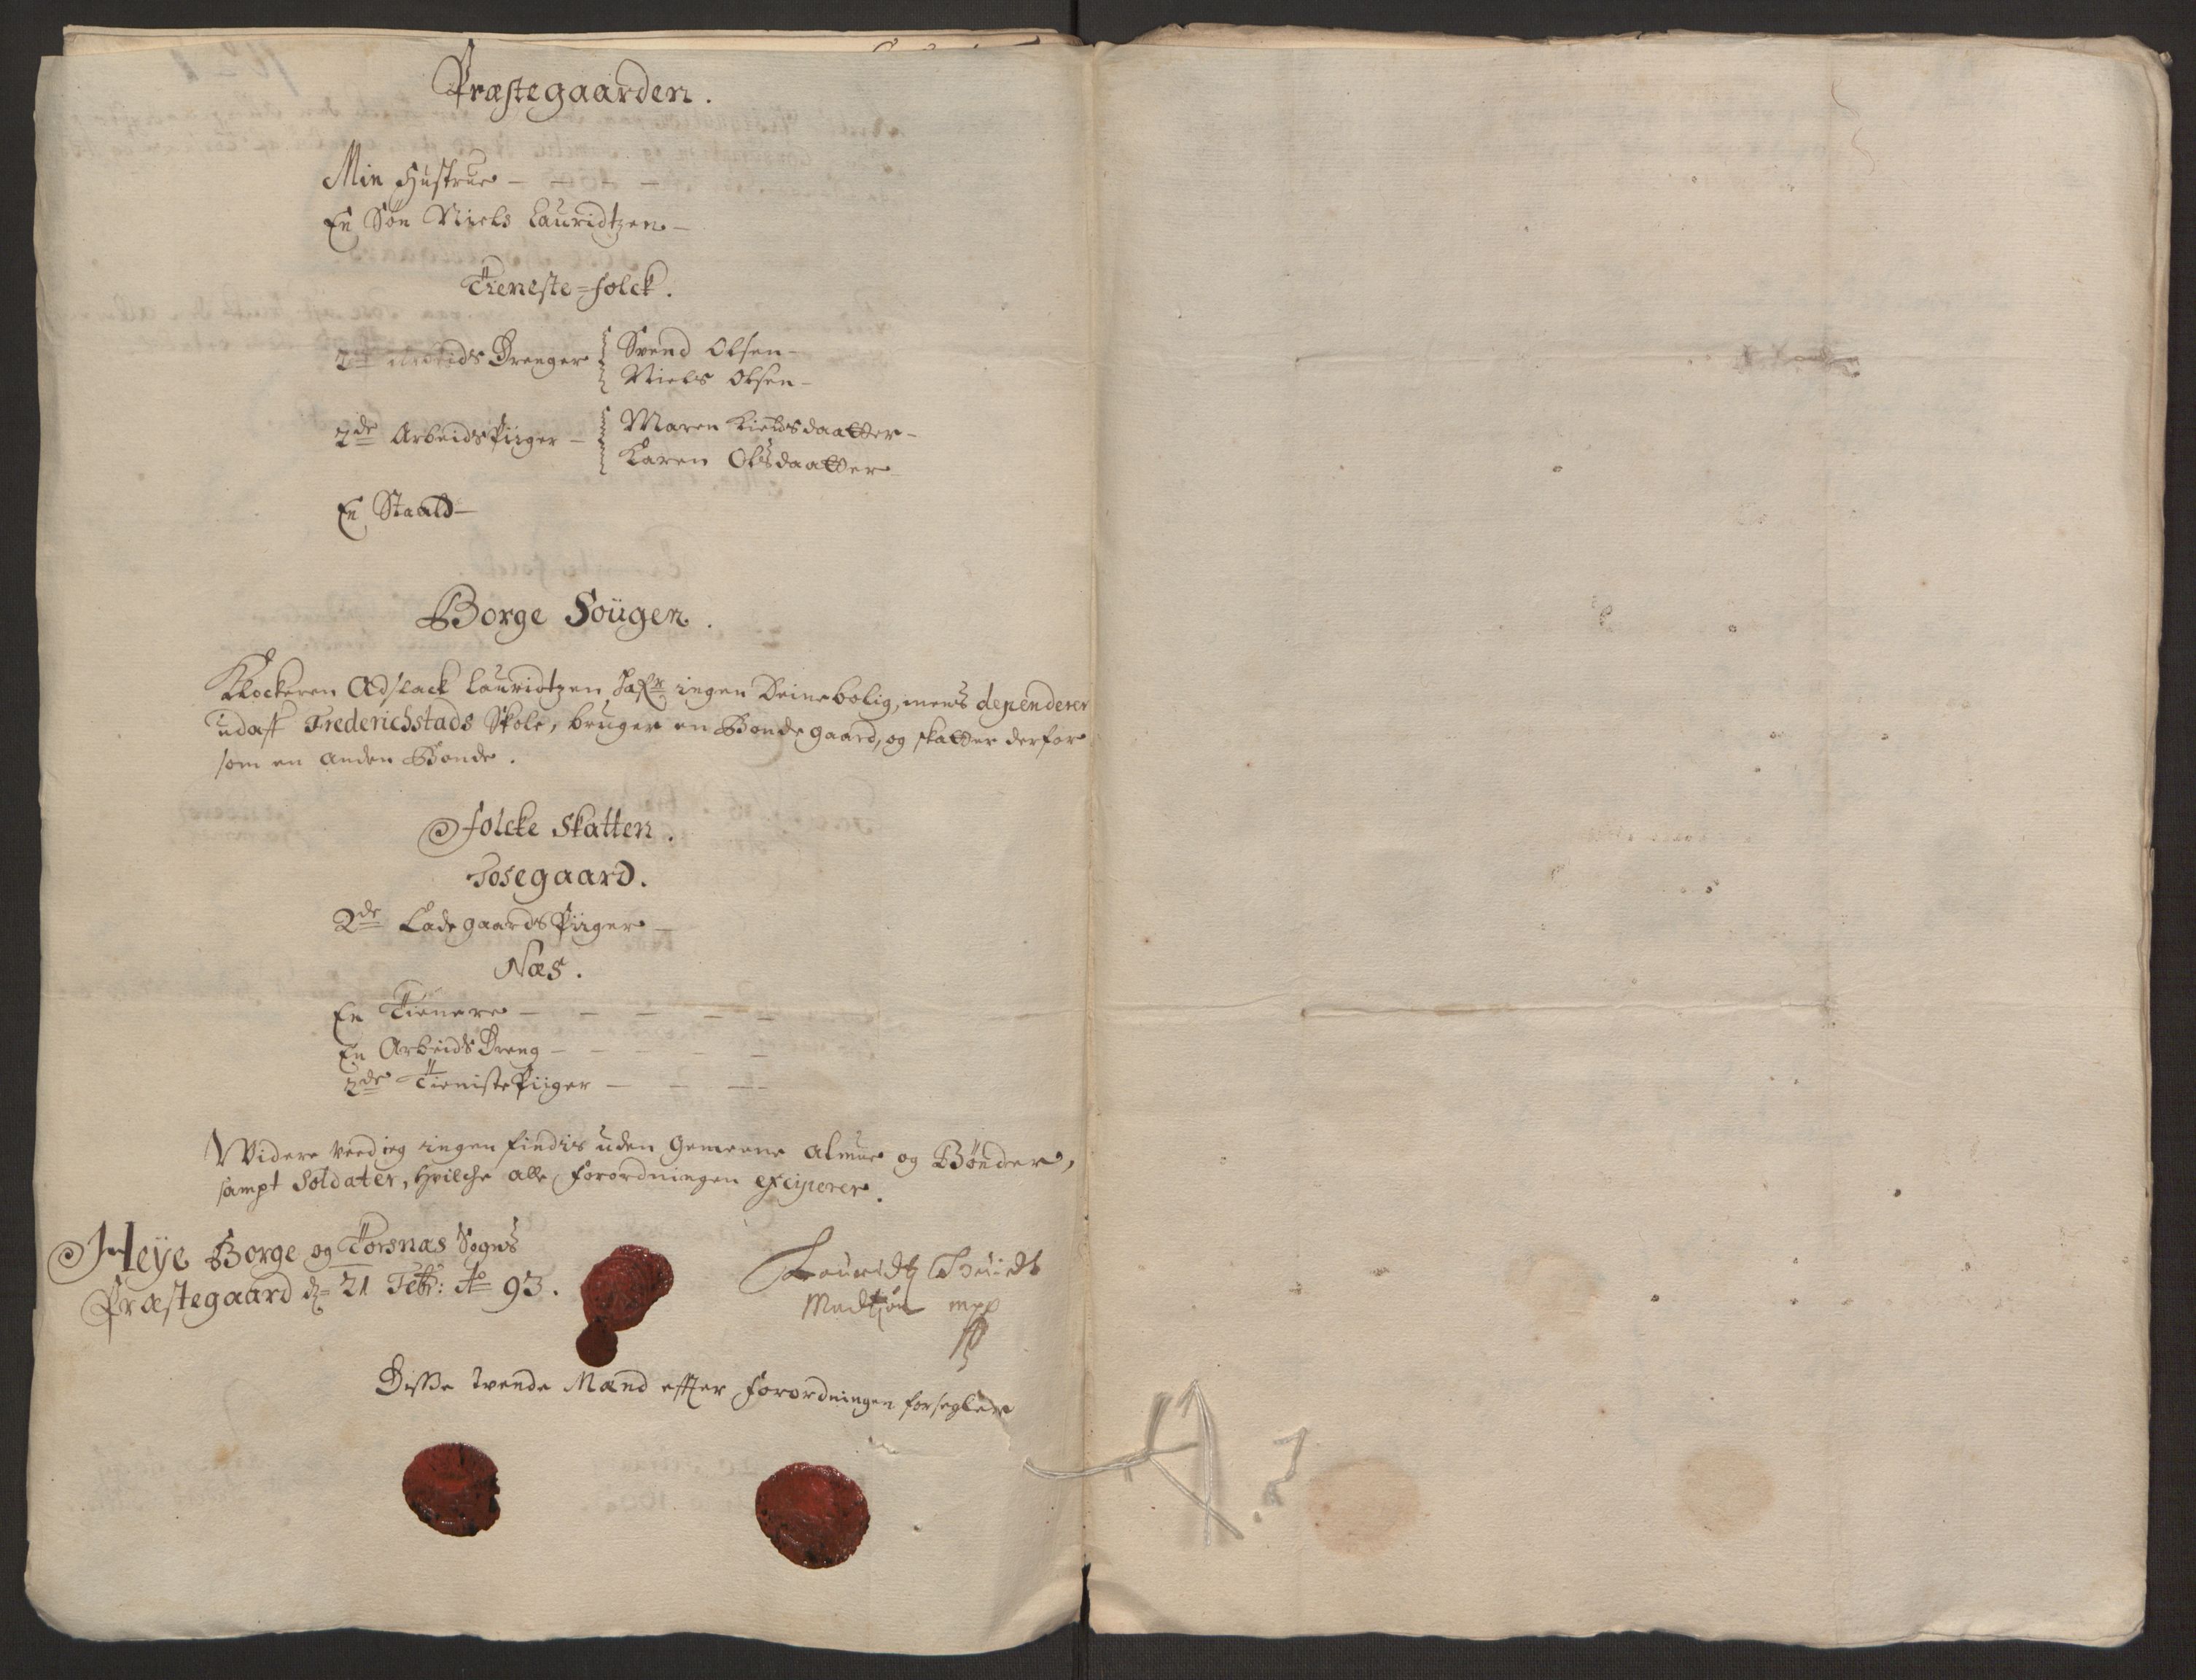 Præstegaarden.
Min Hustrue - - - -
En Søn Niels Lauridtzen -
Tieneste-folck.
2de Arbeids Drenger Svend Olsen -
Niels Olsen -
2de Arbeids Piiger - Maren Kieldsdaatter -
Karen Olsdaatter -
En Staald -
Borge Sougen.
Klockeren Adslack Lauridtzen hafr ingen Deinebolig, mens dependerer
udaff Frederichstads Skole, bruger en Bondegaard, og skatter derfor
som en anden Bonde.
Folcke Skatten.
Tosegaard.
2de Ladegaards Piiger -
Næs.
En Tienere - - - - -
En Arbeids Dreng - - - - -
2de Tieniste Piiger - - - -
Widere veed ieg ingen findis uden Gemeene Almue og Bønder,
sampt Soldater, hvilche alle Forordningen exciperer.
Heÿe Borge og Torsnæs Sogns
Præstegaard d. 21 Febr: Ao 93.
Lauridtz
Madtzøn mpp
Disse tvende Mænd effter Forordningen forsegler